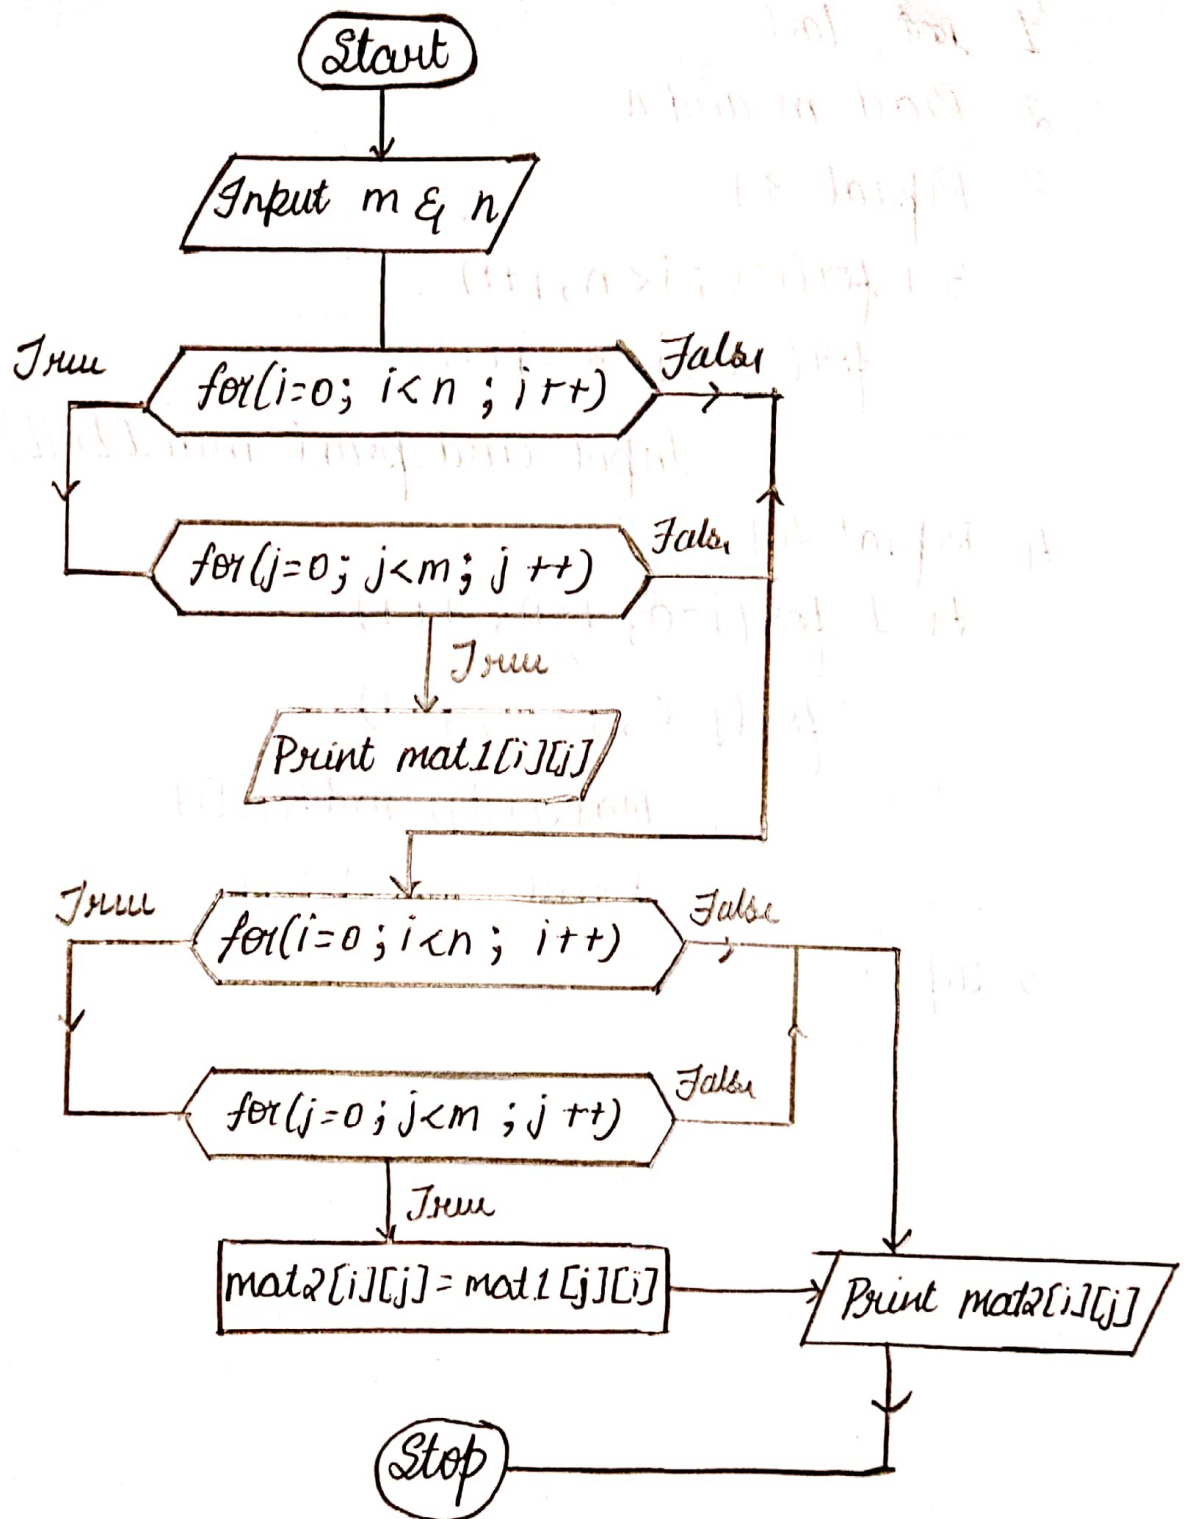 Start
Input m & n
True
for(i=0; i<n ; i++)
False
for(j=0; j<m; j++)
False
True
Print mat1[i][j]
True
for(i=0; i<n; i++)
False
for(j=0; j<m ; j++)
False
True
mat2[i][j]=mat1[j][i]
Print mat2[i][j]
Stop